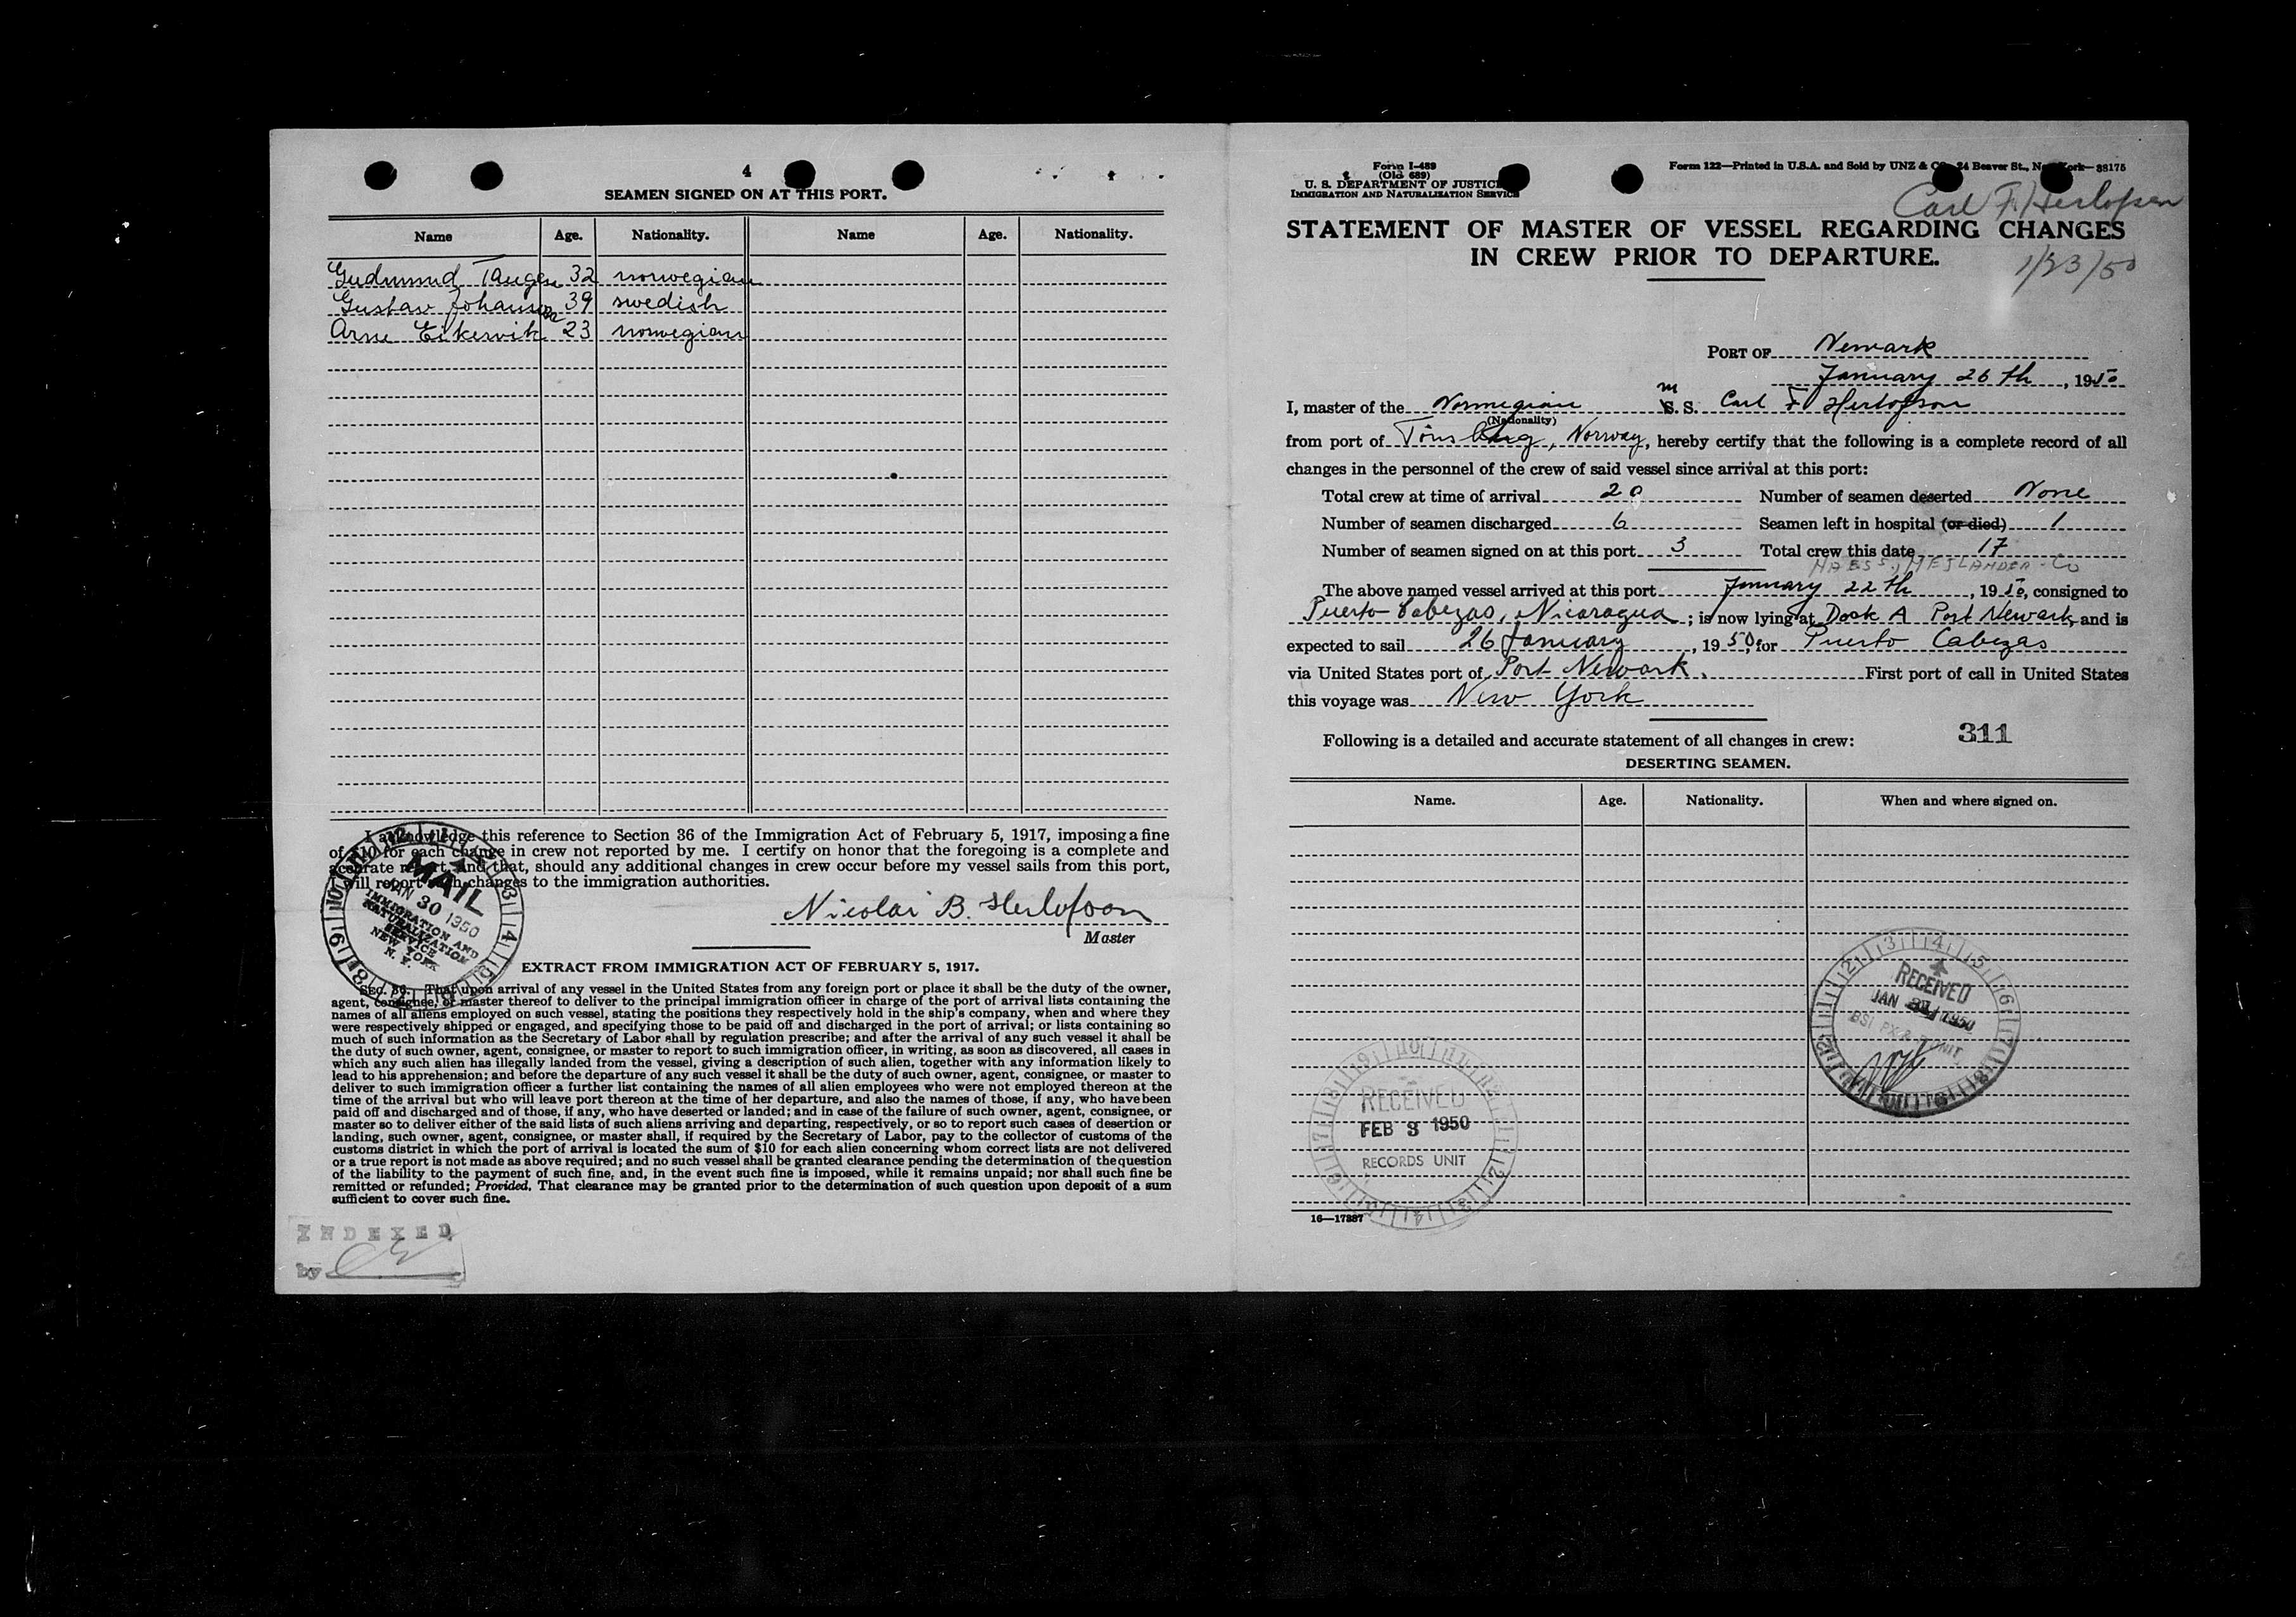 4
SEAMEN SIGNED ON AT THIS PORT.
Name Age. Nationality. Name Age. Nationality.
Gudmund Taugen 32 norwegian
Gustav Johansson 39 swedish
Arne Eikesvik 23 norwegian
I acknowledge this reference to Section 36 of the Immigration Act of February 5, 1917, imposing a fine
of $10 for each change in crew not reported by me. I certify on honor that the foregoing is a complete and
accurate report, and that, should any additional changes in crew occur before my vessel sails from this port,
I will report such changes to the immigration authorities.
MAIL
JAN 30 1950
IMMIGRATION AND
NATURALIZATION
SERVICE
NEW YORK
N. Y.
Nicolai B. Herlofson
Master
EXTRACT FROM IMMIGRATION ACT OF FEBRUARY 5, 1917.
SEC. 36. That upon arrival of any vessel in the United States from any foreign port or place it shall be the duty of the owner,
agent, consignee, or master thereof to deliver to the principal immigration officer in charge of the port of arrival lists containing the
names of all aliens employed on such vessel, stating the positions they respectively hold in the ship's company, when and where they
were respectively shipped or engaged, and specifying those to be paid off and discharged in the port of arrival; or lists containing so
much of such information as the Secretary of Labor shall by regulation prescribe; and after the arrival of any such vessel it shall be
the duty of such owner, agent, consignee, or master to report to such immigration officer, in writing, as soon as discovered, all cases in
which any such alien has illegally landed from the vessel, giving a description of such alien, together with any information likely to
lead to his apprehension; and before the departure of any such vessel it shall be the duty of such owner, agent, consignee, or master to
deliver to such immigration officer a further list containing the names of all alien employees who were not employed thereon at the
time of the arrival but who will leave port thereon at the time of her departure, and also the names of those, if any, who have been
paid off and discharged and of those, if any, who have deserted or landed; and in case of the failure of such owner, agent, consignee, or
master so to deliver either of the said lists of such aliens arriving and departing, respectively, or so to report such cases of desertion or
landing, such owner, agent, consignee, or master shall, if required by the Secretary of Labor, pay to the collector of customs of the
customs district in which the port of arrival is located the sum of $10 for each alien concerning whom correct lists are not delivered
or a true report is not made as above required; and no such vessel shall be granted clearance pending the determination of the question
of the liability to the payment of such fine, and, in the event such fine is imposed, while it remains unpaid; nor shall such fine be
remitted or refunded; Provided, That clearance may be granted prior to the determination of such question upon deposit of a sum
sufficient to cover such fine.
INDEXED
by
Form I-489
(Old 689)
U. S. DEPARTMENT OF JUSTICE
IMMIGRATION AND NATURALIZATION SERVICE
Form 122—Printed in U.S.A. and Sold by UNZ & CO., 24 Beaver St., New York—88175
Carl F. Herlofsen
STATEMENT OF MASTER OF VESSEL REGARDING CHANGES
IN CREW PRIOR TO DEPARTURE.
1/23/50
PORT OF Newark
January 26th, 1950
I, master of the Norwegian m S. S. Carl F Herlofson
(Nationality)
from port of Tönsberg, Norway, hereby certify that the following is a complete record of all
changes in the personnel of the crew of said vessel since arrival at this port:
Total crew at time of arrival 20 Number of seamen deserted None
Number of seamen discharged 6 Seamen left in hospital (or died) 1
Number of seamen signed on at this port 3 Total crew this date 17
The above named vessel arrived at this port January 22th, 1950, consigned to
Puerto Cabezas, Nicaragua; is now lying at Dock A Port Newark, and is
expected to sail 26 January, 1950, for Puerto Cabezas
via United States port of Port Newark. First port of call in United States
this voyage was New York
Following is a detailed and accurate statement of all changes in crew: 311
DESERTING SEAMEN.
Name. Age. Nationality. When and where signed on.
RECEIVED
JAN 1950
RECEIVED
FEB 3 1950
RECORDS UNIT
16—17887